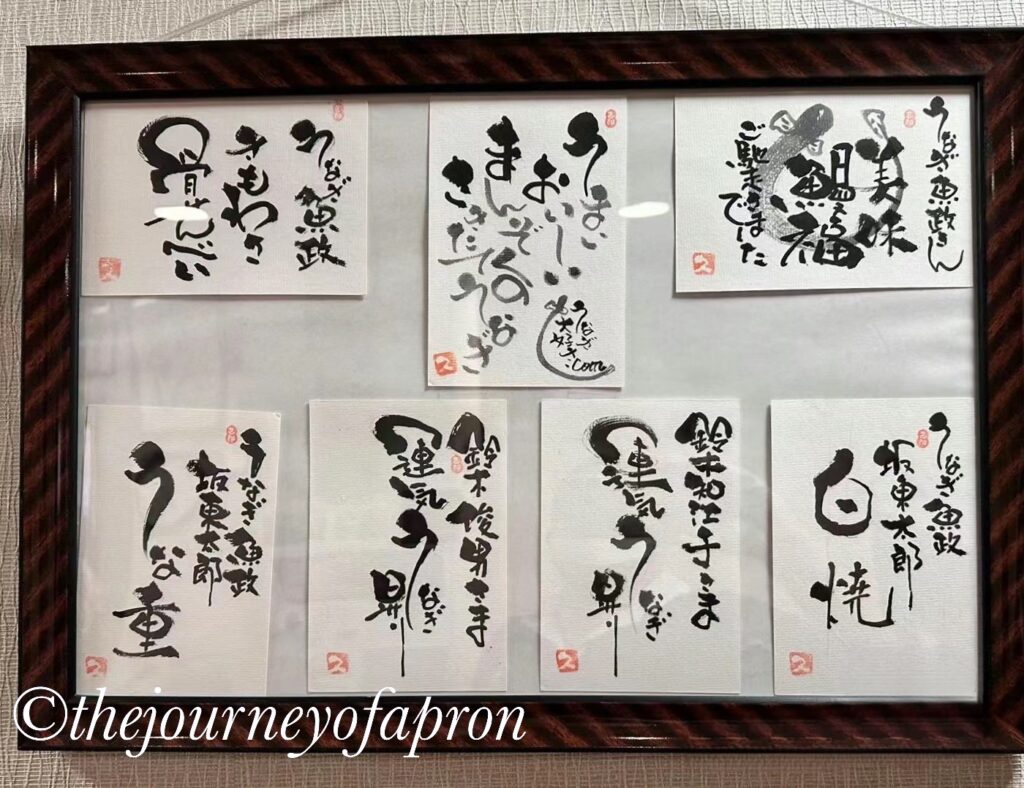 うなぎ魚政
きもわさ
骨せんべい
うまい
おいしい
まんぞくの
さきたてうなぎ
うなぎ
大好き.com
うなぎ魚政さん
美味
鰻福
ご馳走さま
でした
うなぎ魚政
坂東太郎
うな重
鈴木俊男さま
運気
うなぎ
昇り
鈴木
さま
運気
うなぎ
昇り
うなぎ魚政
坂東太郎
白焼
©thejourneyofapron